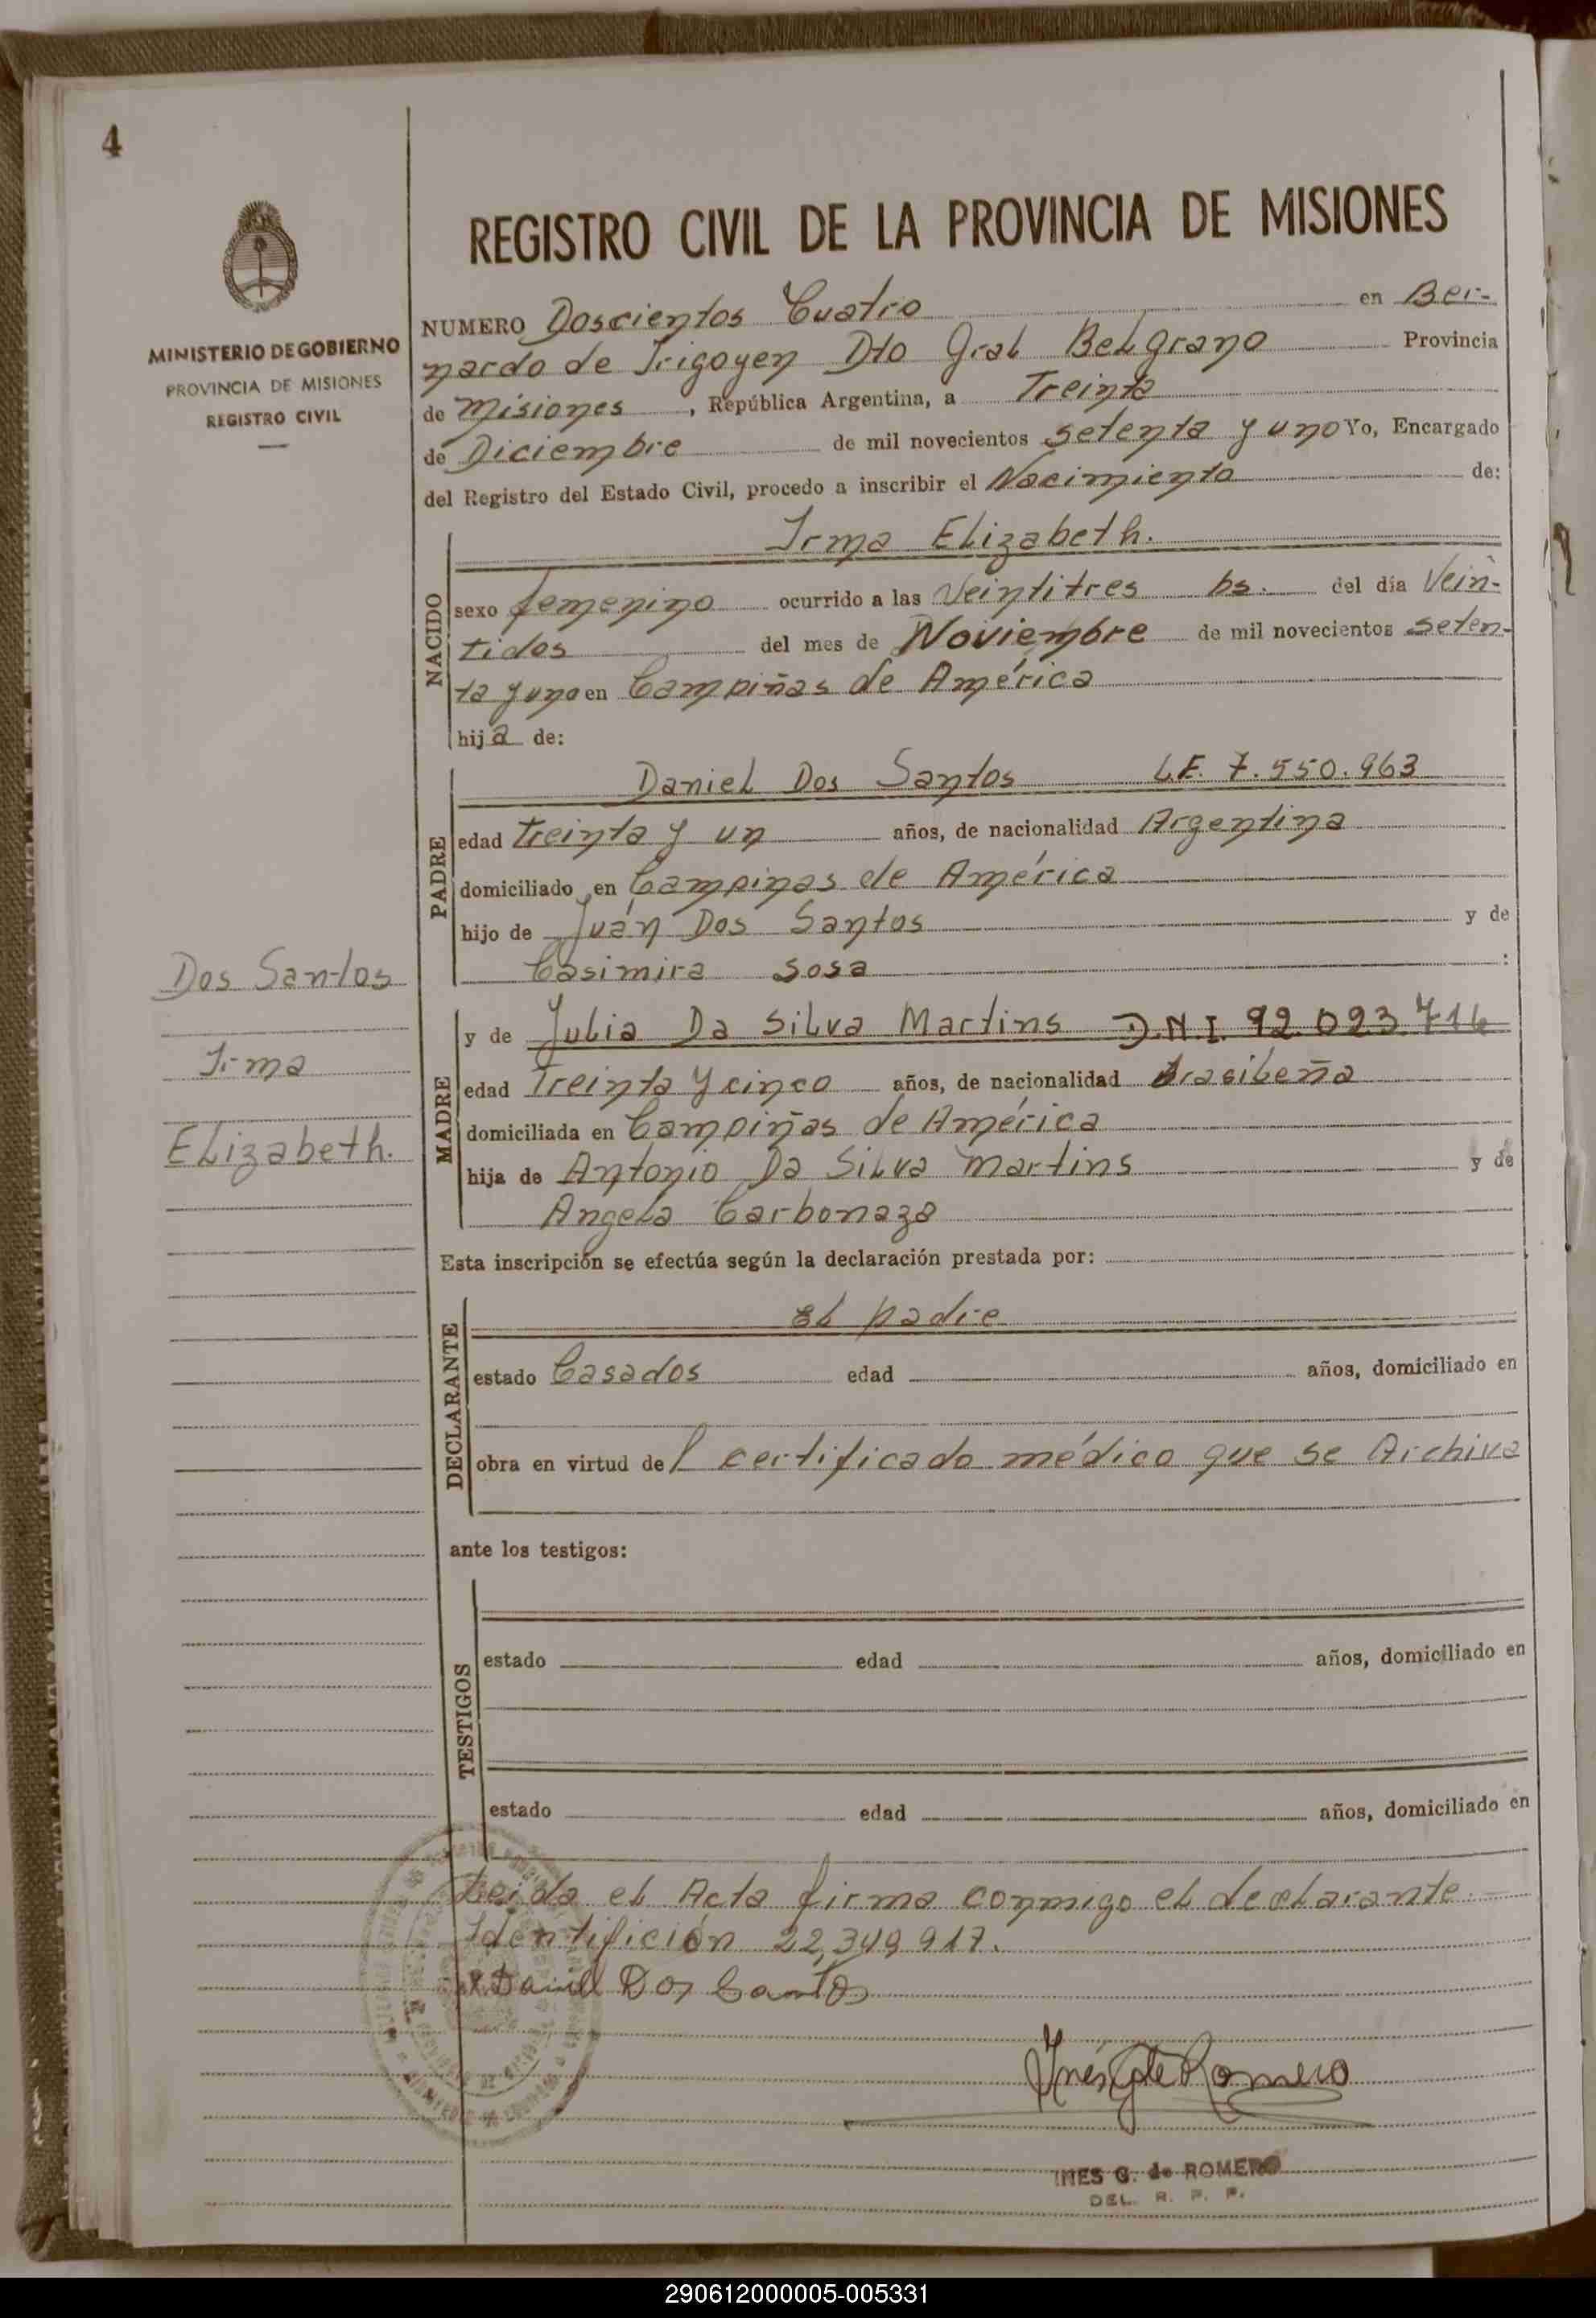 4
MINISTERIO DE GOBIERNO
PROVINCIA DE MISIONES
REGISTRO CIVIL
REGISTRO CIVIL DE LA PROVINCIA DE MISIONES
NUMERO Doscientos Cuatro en Ber-
nardo de Irigoyen Dto Gral Belgrano Provincia
de Misiones, República Argentina, a Treinta
de Diciembre de mil novecientos setenta y uno Yo, Encargado
del Registro del Estado Civil, procedo a inscribir el Nacimiento de:
NACIDO
Irma Elizabeth.
sexo femenino ocurrido a las Veintitres hs. del día Vein-
tidos del mes de Noviembre de mil novecientos seten-
ta y uno en Campiñas de América
hija de:
PADRE
Daniel Dos Santos L.E. 7.550.963
edad treinta y un años, de nacionalidad Argentina
domiciliado en Campinas de América
hijo de Juán Dos Santos y de
Casimira Sosa :
Dos Santos
Irma
Elizabeth.
MADRE
y de Julia Da Silva Martins D.N.I. 92.023.714
edad Treinta y cinco años, de nacionalidad brasileña
domiciliada en Campiñas de América
hija de Antonio Da Silva Martins y de
Angela Carbonazo
Esta inscripción se efectúa según la declaración prestada por:
DECLARANTE
el padre
estado Casados edad años, domiciliado en
obra en virtud del certificado médico que se Archiva
ante los testigos:
TESTIGOS
estado edad años, domiciliado en
estado edad años, domiciliado en
Leida el Acta firma conmigo el declarante.
Identifición 22,349,917.
Daniel Dos Santos
Inés G de Romero
INES G. de ROMERO
DEL. R. P. P.
290612000005-005331